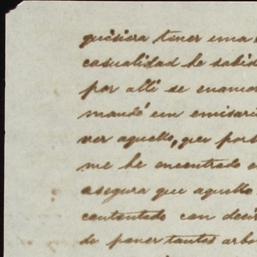 quisiera tener una
casualidad he sabido
por alli se enamo
mandó un emisari
ver aquello, que por
me he encontrado
asegura que aquello
contentado con deci
de poner tantos arbo